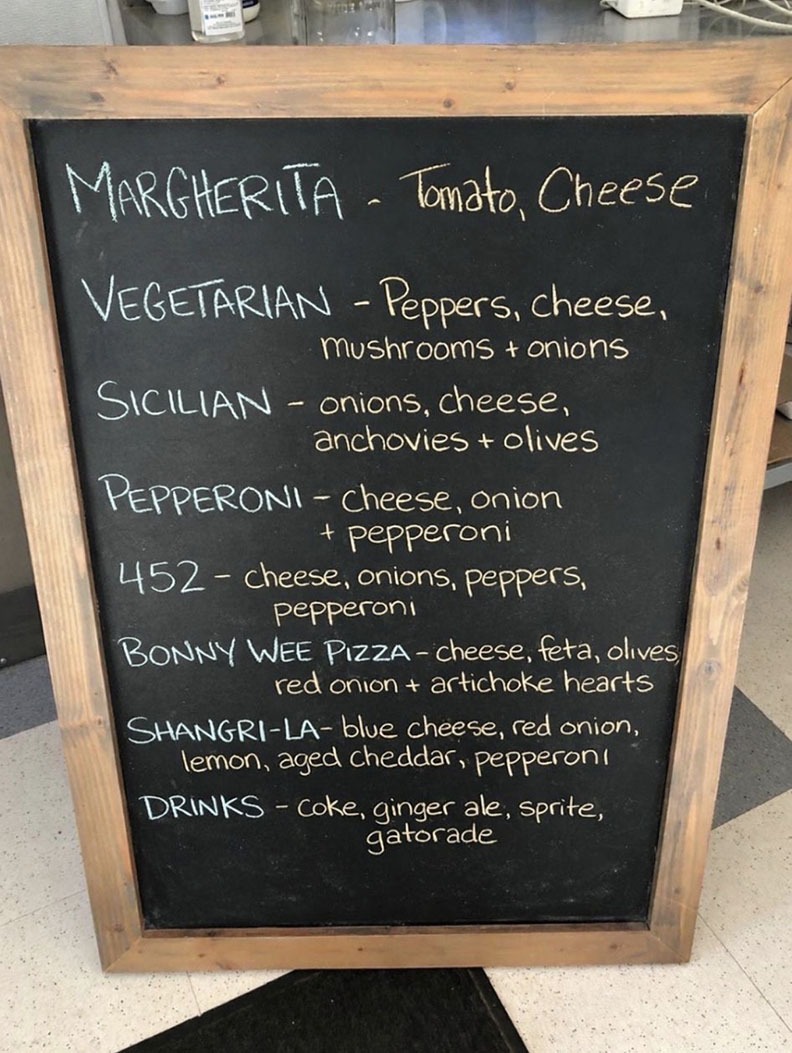 MARGHERITA - Tomato, Cheese
VEGETARIAN - Peppers, cheese,
mushrooms + onions
SICILIAN - onions, cheese,
anchovies + olives
PEPPERONI - cheese, onion
+ pepperoni
452 - cheese, onions, peppers,
pepperoni
BONNY WEE PIZZA - cheese, feta, olives,
red onion + artichoke hearts
SHANGRI-LA - blue cheese, red onion,
lemon, aged cheddar, pepperoni
DRINKS - coke, ginger ale, sprite,
gatorade